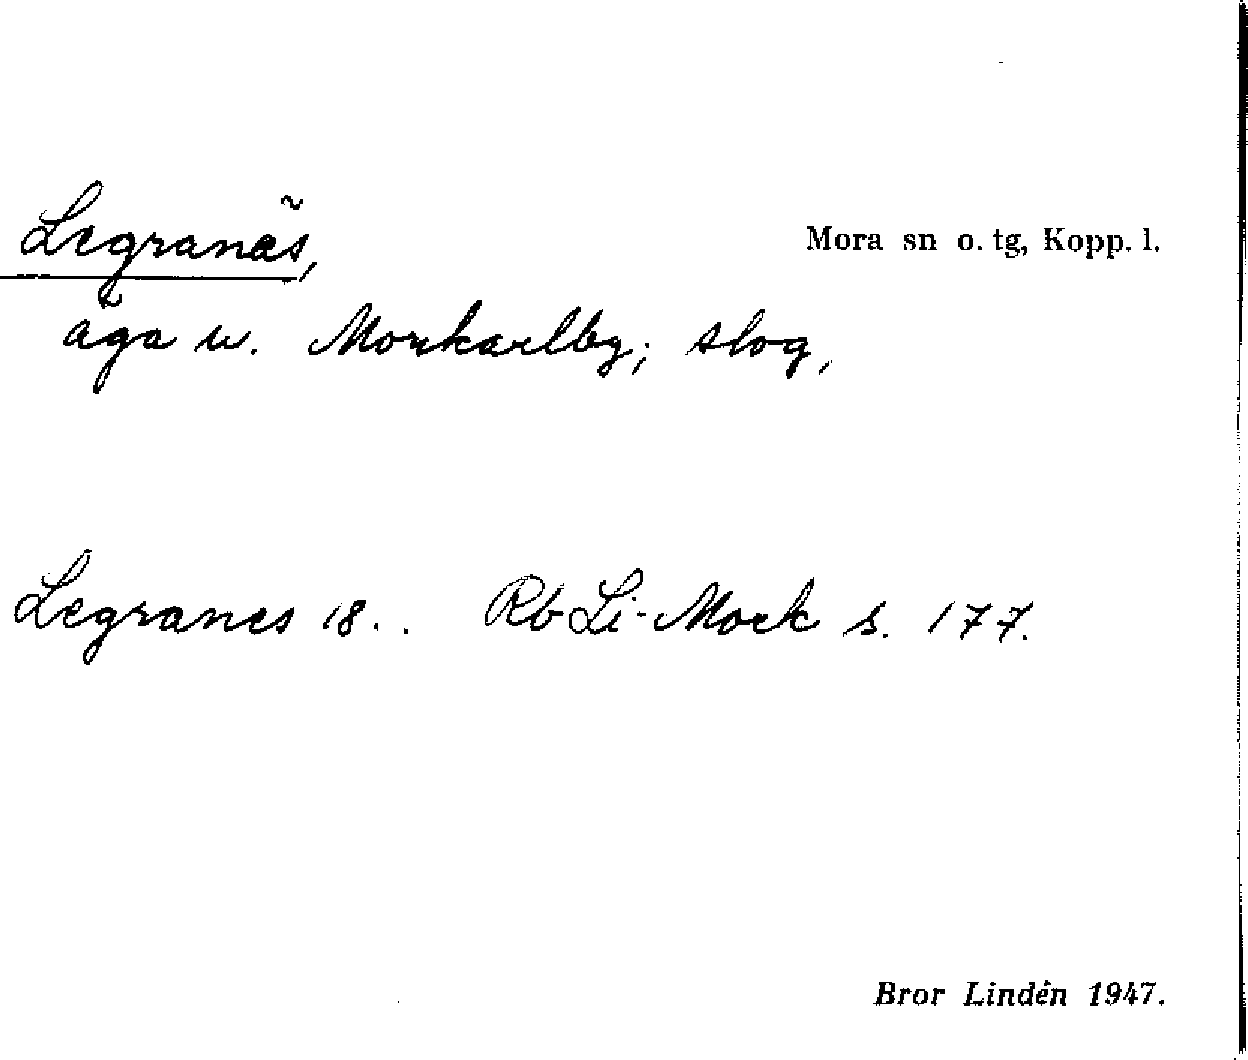 Legranäs, Mora sn o. tg, Kopp. l.
äga u. Morkarlby; slog,
Legranes 18.. Rb Li-Mork s. 177.
Bror Lindén 1947.